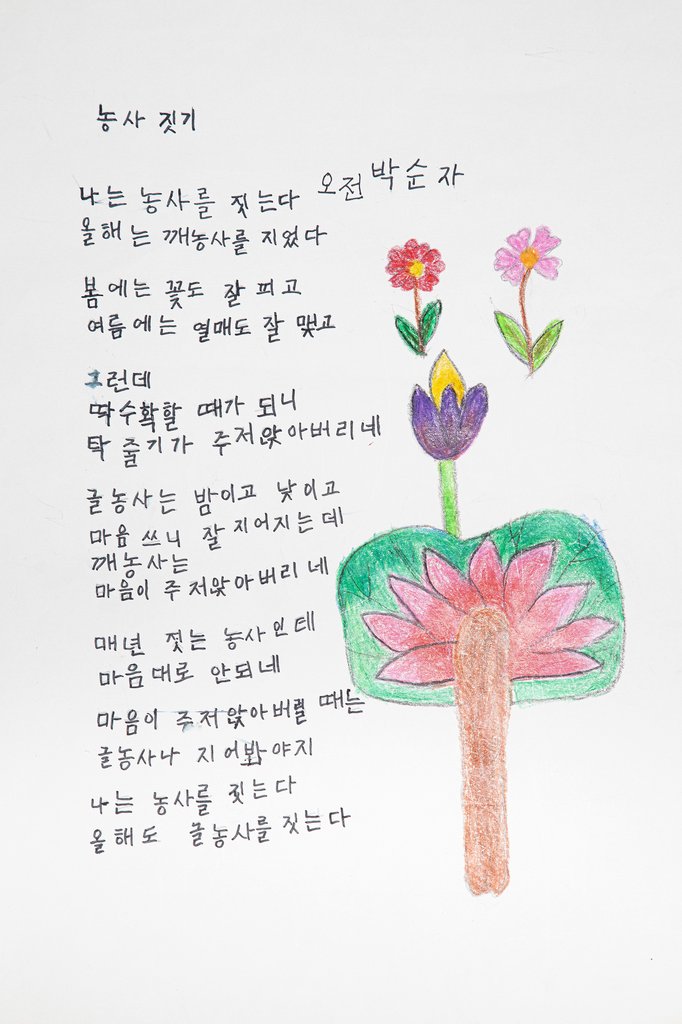 농사 짓기
오전 박순자
나는 농사를 짓는다
올해는 깨농사를 지었다
봄에는 꽃도 잘 피고
여름에는 열매도 잘 맺고
그런데
딱수확할 때가 되니
탁 줄기가 주저앉아버리네
글농사는 밤이고 낮이고
마음 쓰니 잘 지어지는데
깨농사는
마음이 주저앉아버리네
매년 짓는 농사인데
마음대로 안되네
마음이 주저앉아버릴 때는
글농사나 지어봐야지
나는 농사를 짓는다
올해도 글농사를 짓는다